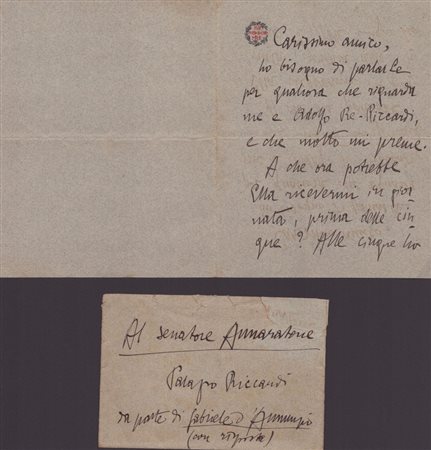 Carissimo amico,
ho bisogno di parlarLe
per qualcosa che riguarda
me e Adolfo Re-Riccardi,
e che molto mi preme.
A che ora potrebbe
Ella ricevermi in gior-
nata, prima delle cin-
que? Alle cinque ho
Al senatore Annaratone
Palazzo Riccardi
da parte di Gabriele d'Annunzio
(con risposta)